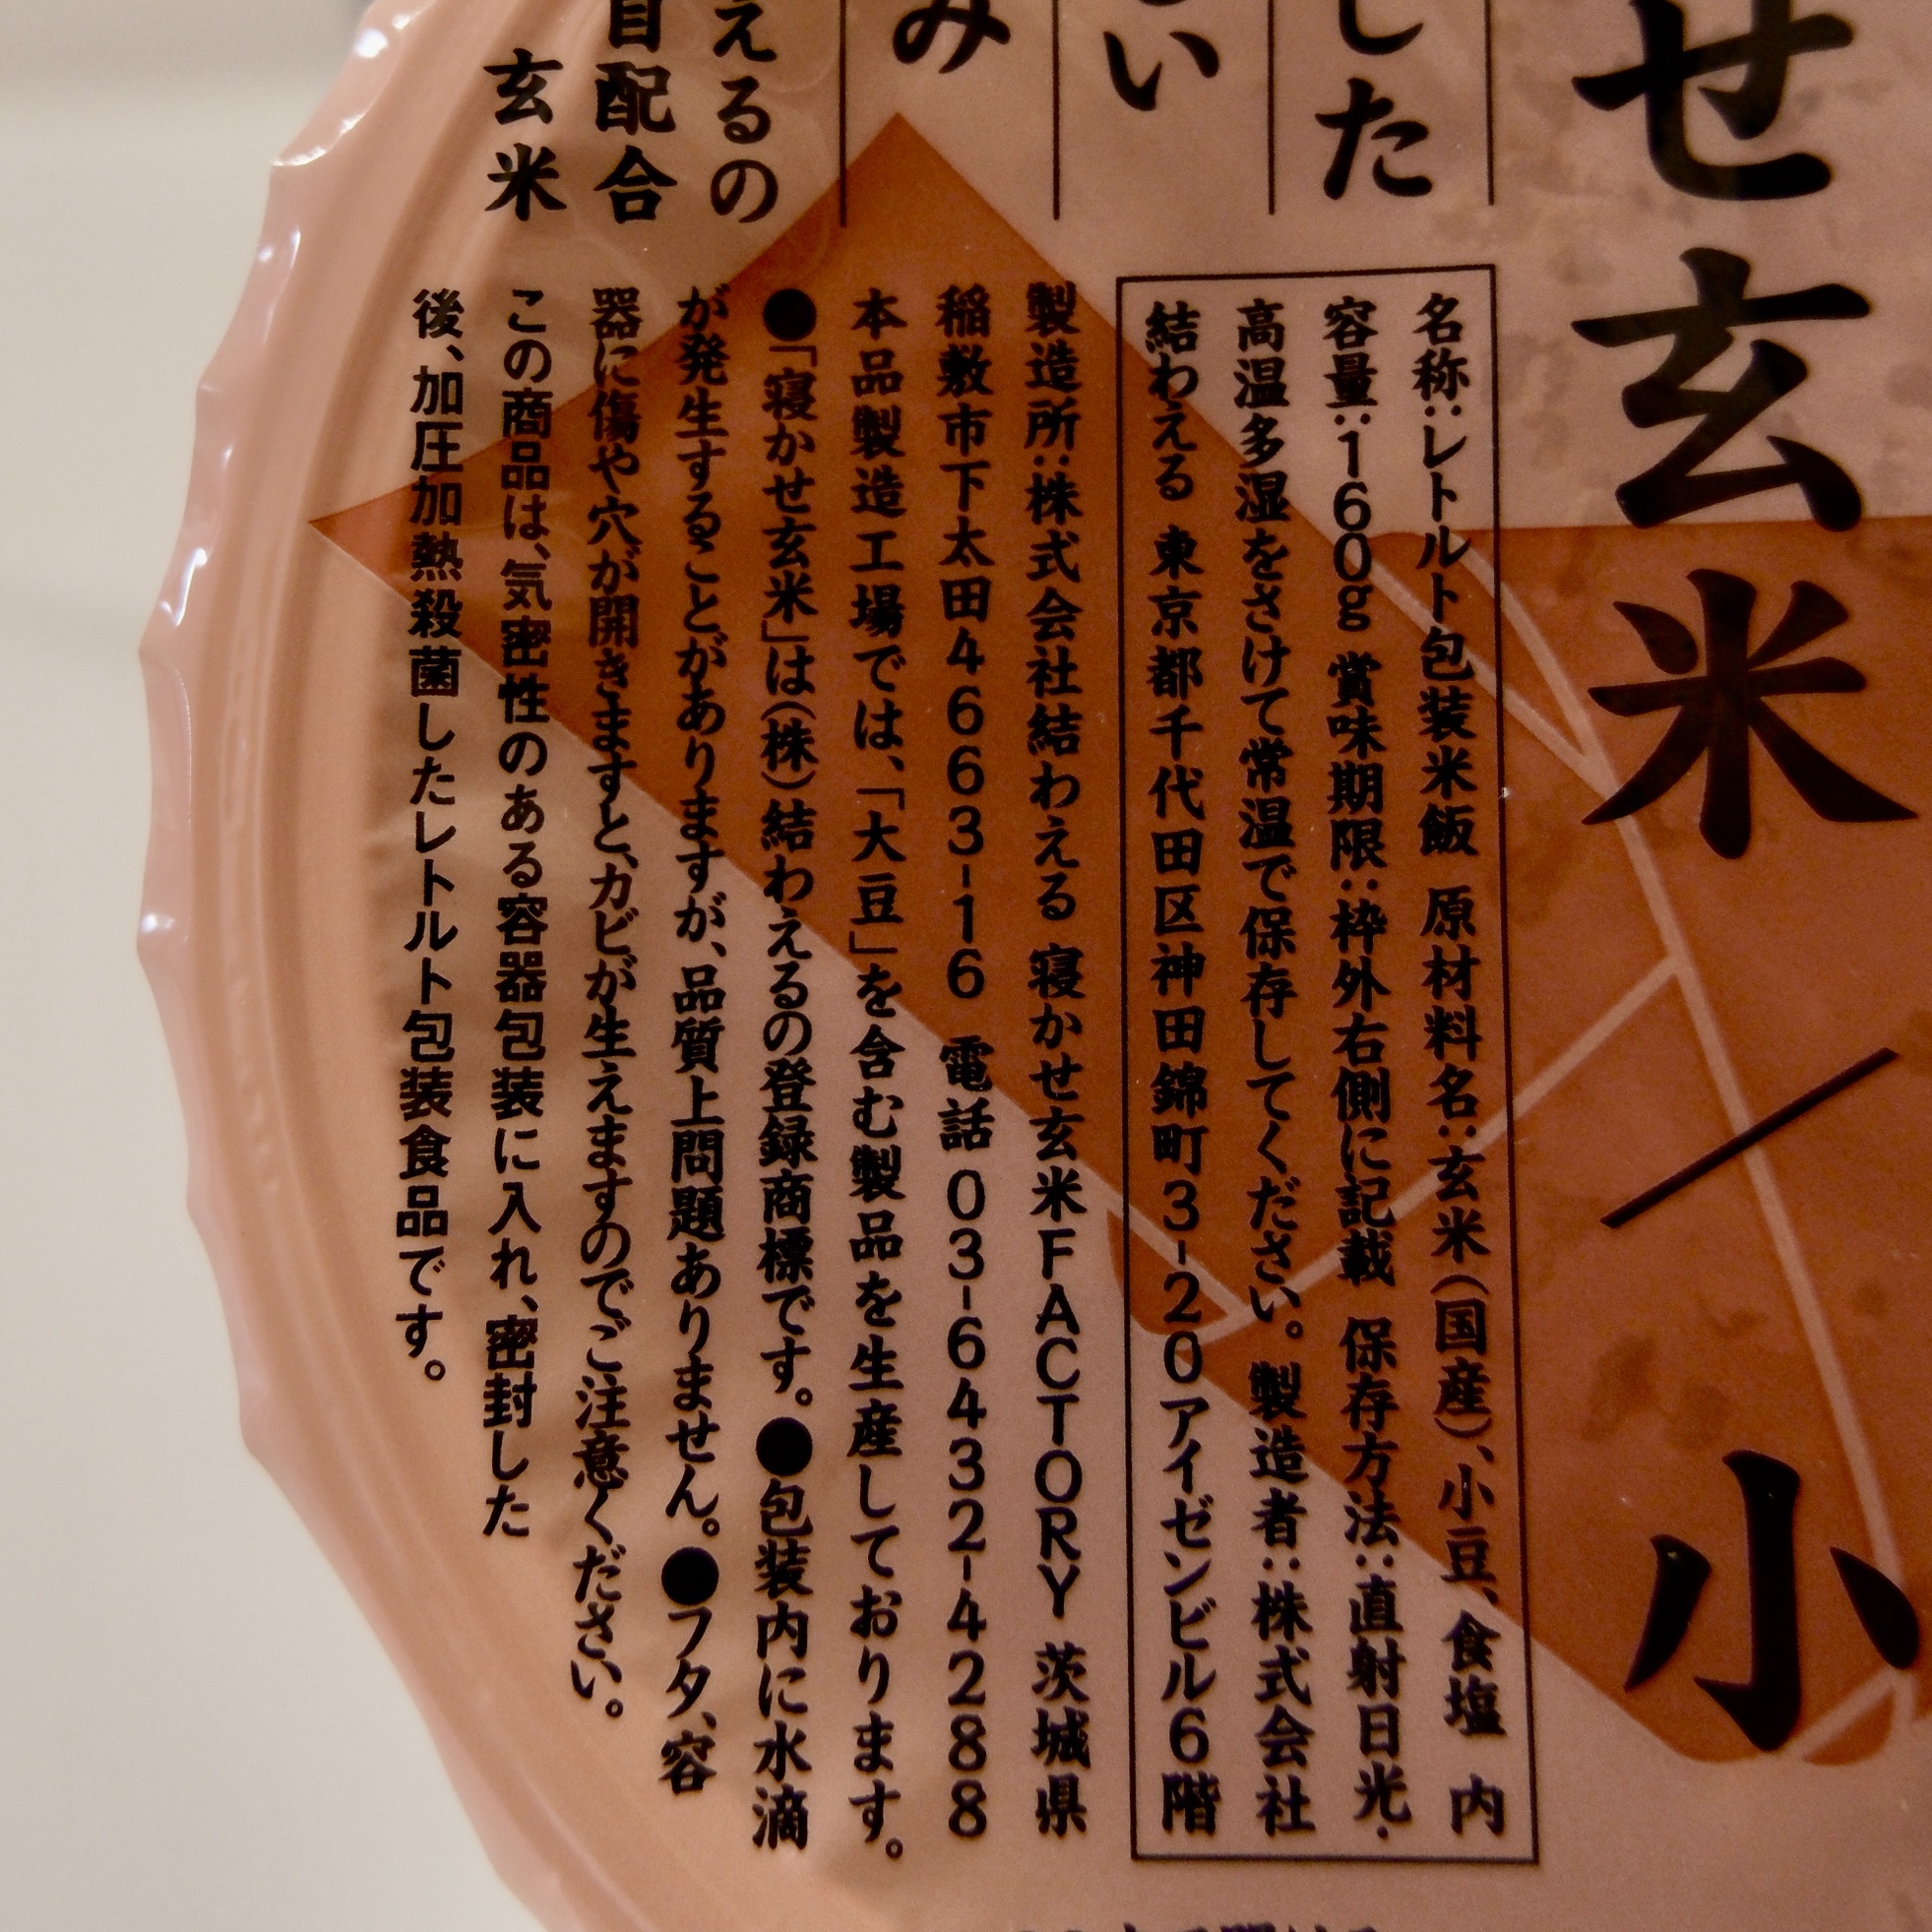 せ玄米／小
した
い
み
えるの
目配合
玄米
名称：レトルト包装米飯 原材料名：玄米（国産）、小豆、食塩 内
容量：160g 賞味期限：枠外右側に記載 保存方法：直射日光・
高温多湿をさけて常温で保存してください。製造者：株式会社
結わえる 東京都千代田区神田錦町3-20アイゼンビル6階
製造所：株式会社結わえる 寝かせ玄米FACTORY 茨城県
稲敷市下太田4663-16 電話 03-6432-4288
本品製造工場では、「大豆」を含む製品を生産しております。
●「寝かせ玄米」は（株）結わえるの登録商標です。●包装内に水滴
が発生することがありますが、品質上問題ありません。●フタ、容
器に傷や穴が開きますと、カビが生えますのでご注意ください。
この商品は、気密性のある容器包装に入れ、密封した
後、加圧加熱殺菌したレトルト包装食品です。